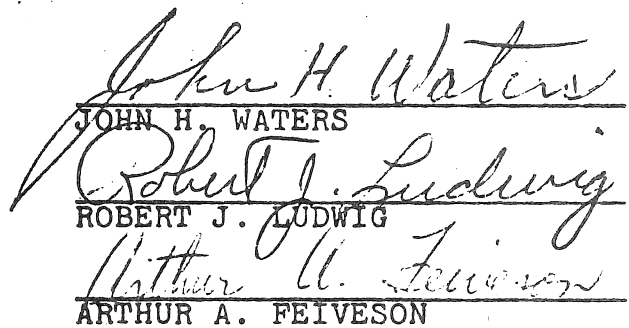 John H. Waters
JOHN H. WATERS
Robert J. Ludwig
ROBERT J. LUDWIG
Arthur A. Feiveson
ARTHUR A. FEIVESON